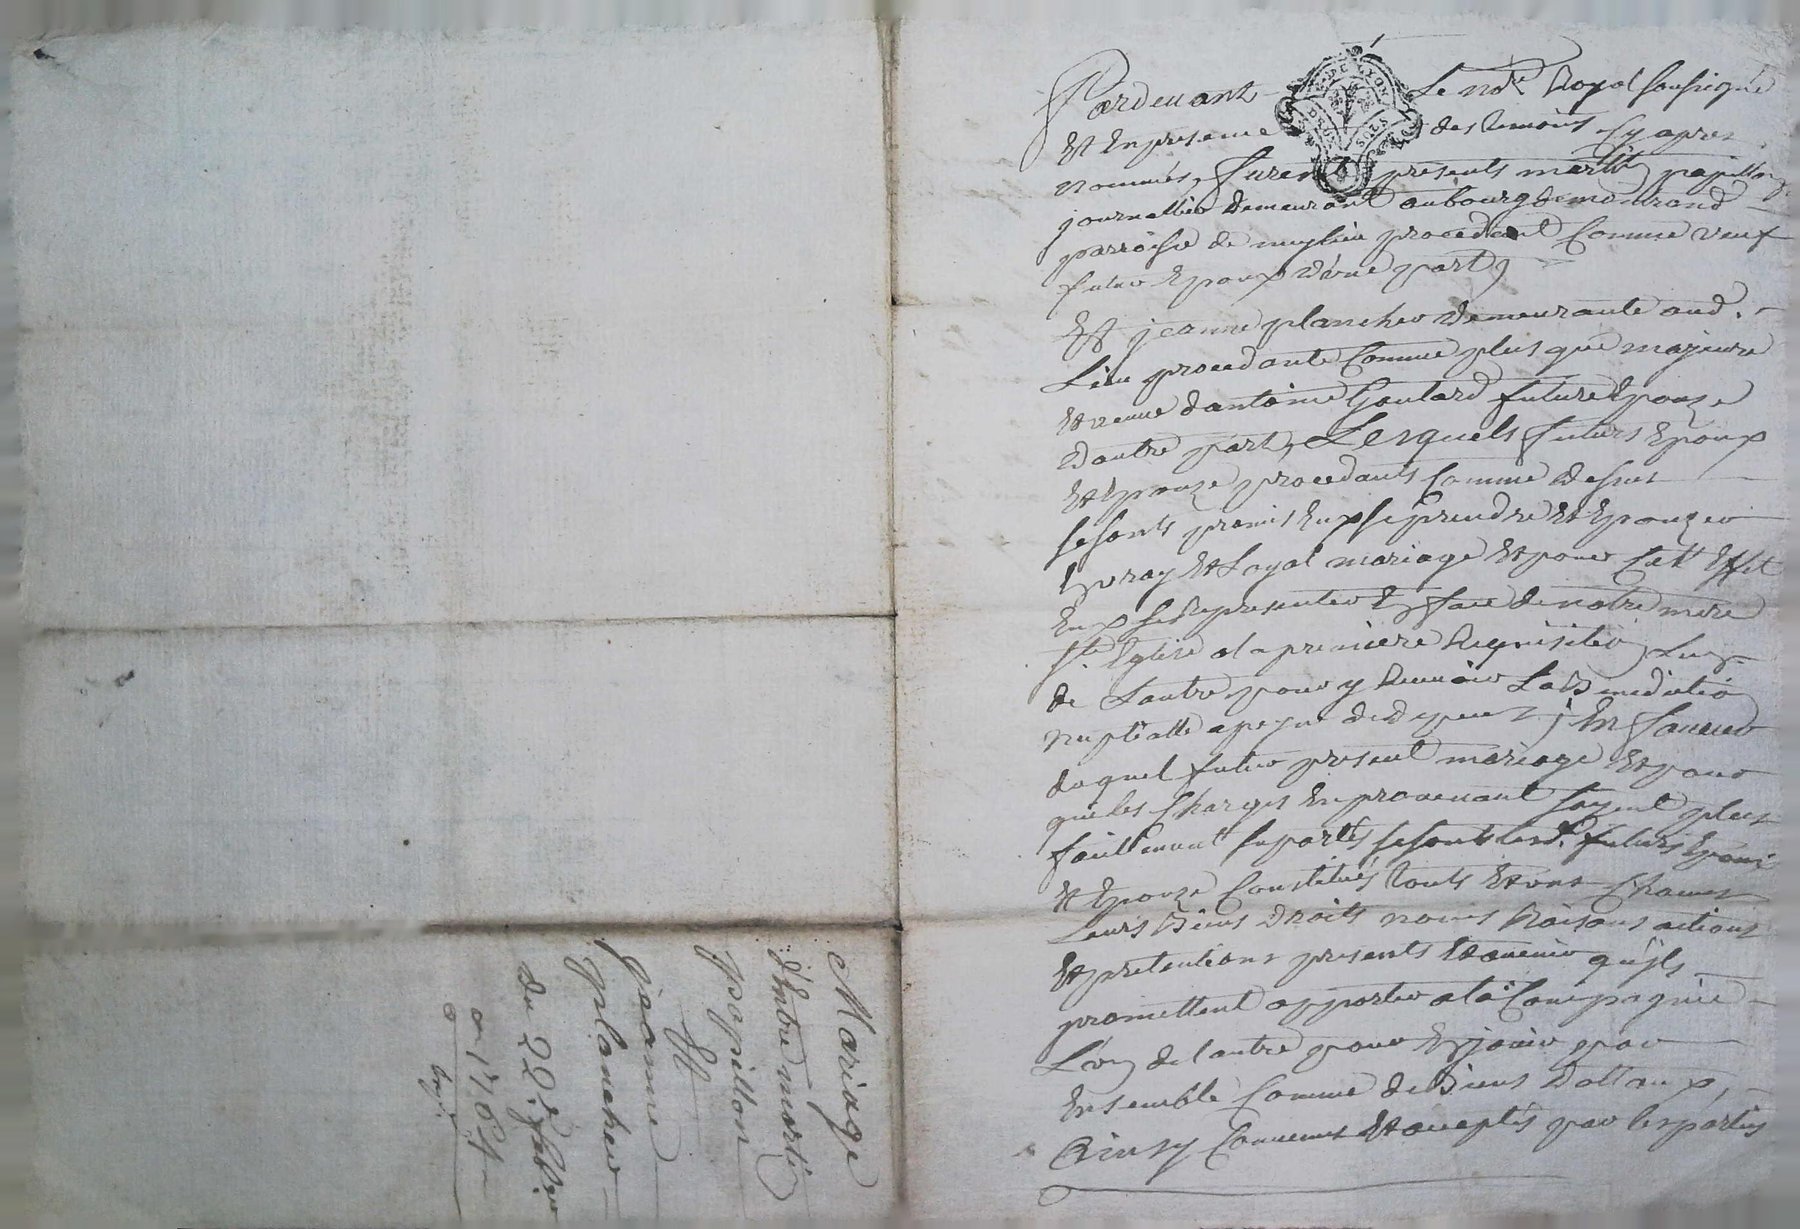 Pardevant Le nore Royal soussigné
Et En presence des temoins Cy apres
nommés, furent presents martin papillon
journallier demeurant au bourg de montrond
parroisse de meylieu procedant Comme veuf
futur Epoux d'une part,
Et jeanne plancher demeurante aud.
Lieu procedante Comme plus que majeure
Et veuve d'antoine Goutard future Epouze
d'autre part, Lesquels futurs Epoux
Et Epouze procedants Comme dessus
se sonts promis Eux se prendre Et Epouzer
En vray Et Loyal mariage Et pour Cett Effet
Eux se Representer En face de notre mere
ste. Eglise a la premiere Requisition Lun
de Lautre pour y Recevoir La Benediction
nuptialle a peyne de depens; En faveur
duquel futur present mariage Et pour
que les Charges En provenant soyent plus
facillement suportés se sonts lesd. futurs Epoux
Et Epouze Constitués touts Et uns Chacuns
Leurs Biens droits noms Raisons actions
Et pretentions presents Et avenir qu'ils
promettent apporter a la Compagnie
L'un de l'autre pour En jouir par
Ensemble Comme de Biens Dottaux,
Ainsy Convenus Et acceptés par les parties
G. DE LYON
DEUX SOLS
Mariage
d'Entre martin
papillon
Et
jeanne
plancher
du 22e. fabvr
1767